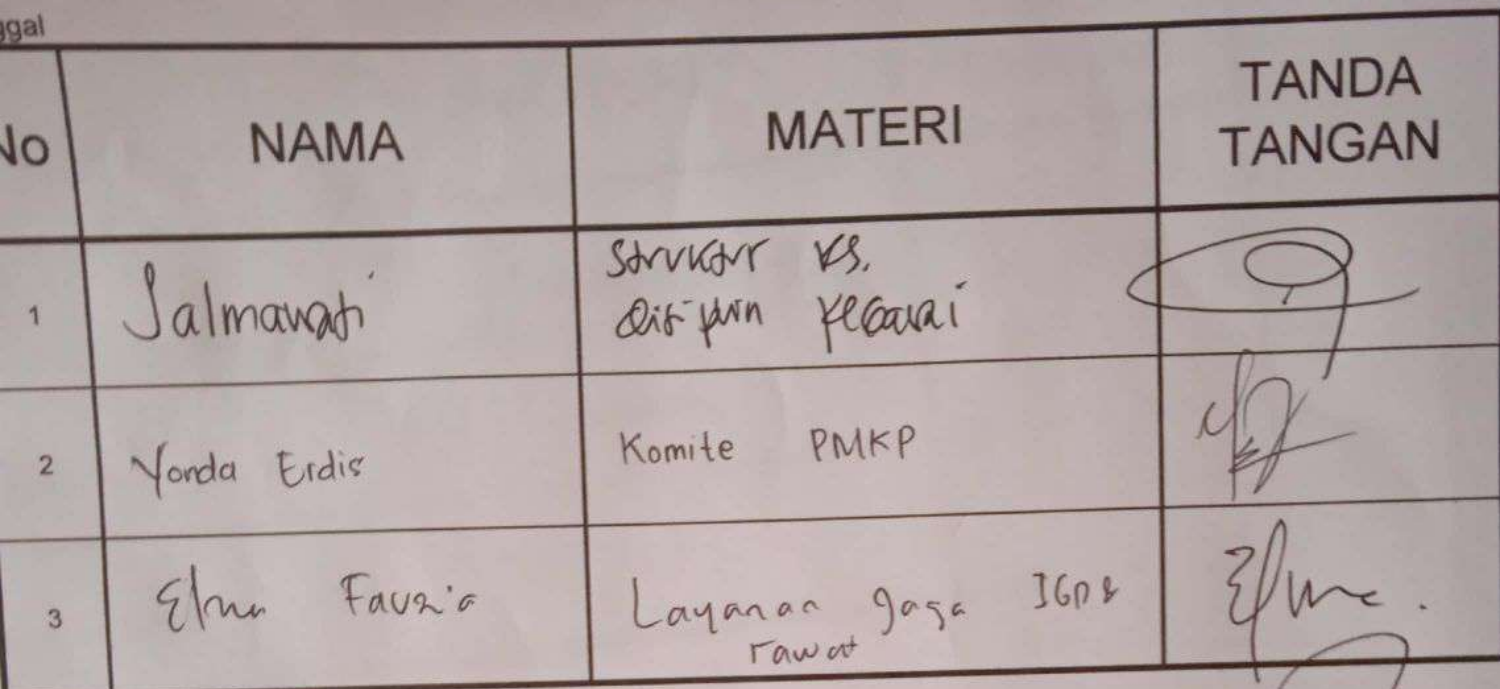 No NAMA MATERI TANDA
TANGAN
1 Salmawati Struktur RS.
Disiplin Pegawai
2 Yonda Erdis Komite PMKP
3 Elma Fauzia Layanan jaga IGD &
rawat